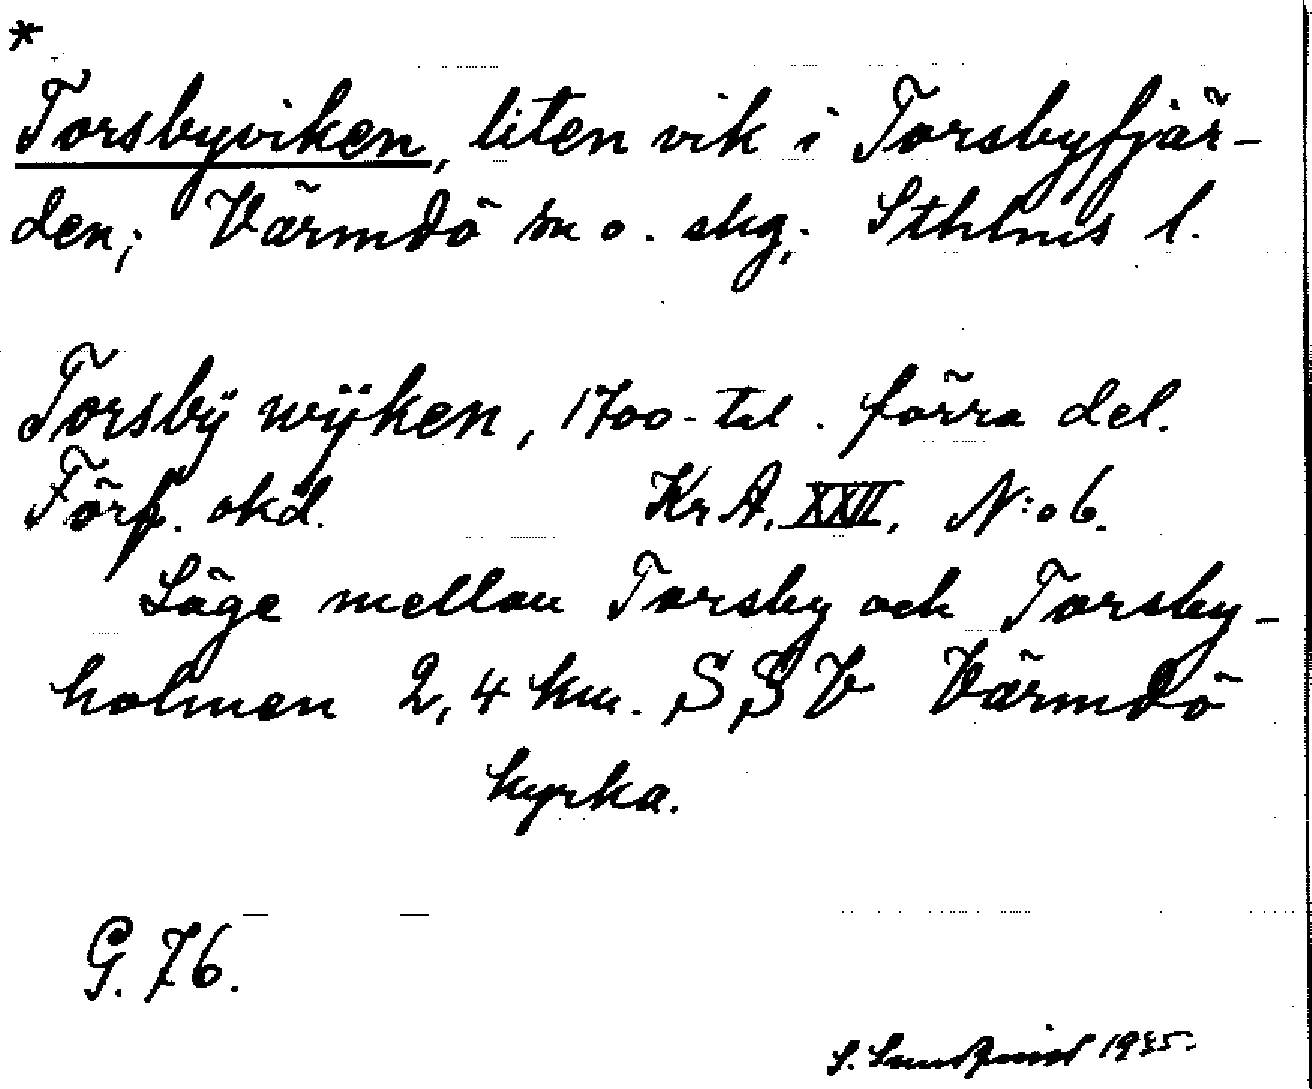 *
Torsbyviken, liten vik i Torsbyfjär-
den; Värmdö sn o. skg; Sthlms l.
Torsbÿ wÿken, 1700-tal. förra del.
Förf. okd. Kr A. XXII, N:o 6.
Läge mellan Torsby och Torsby-
holmen 2,4 km. SSV Värmdö
kyrka.
G. 76.
S. Sundqvist 1935.